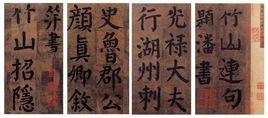 竹山連句
題潘書
光祿大夫
行湖州刺
史魯郡公
顏真卿敘
并書
竹山招隱